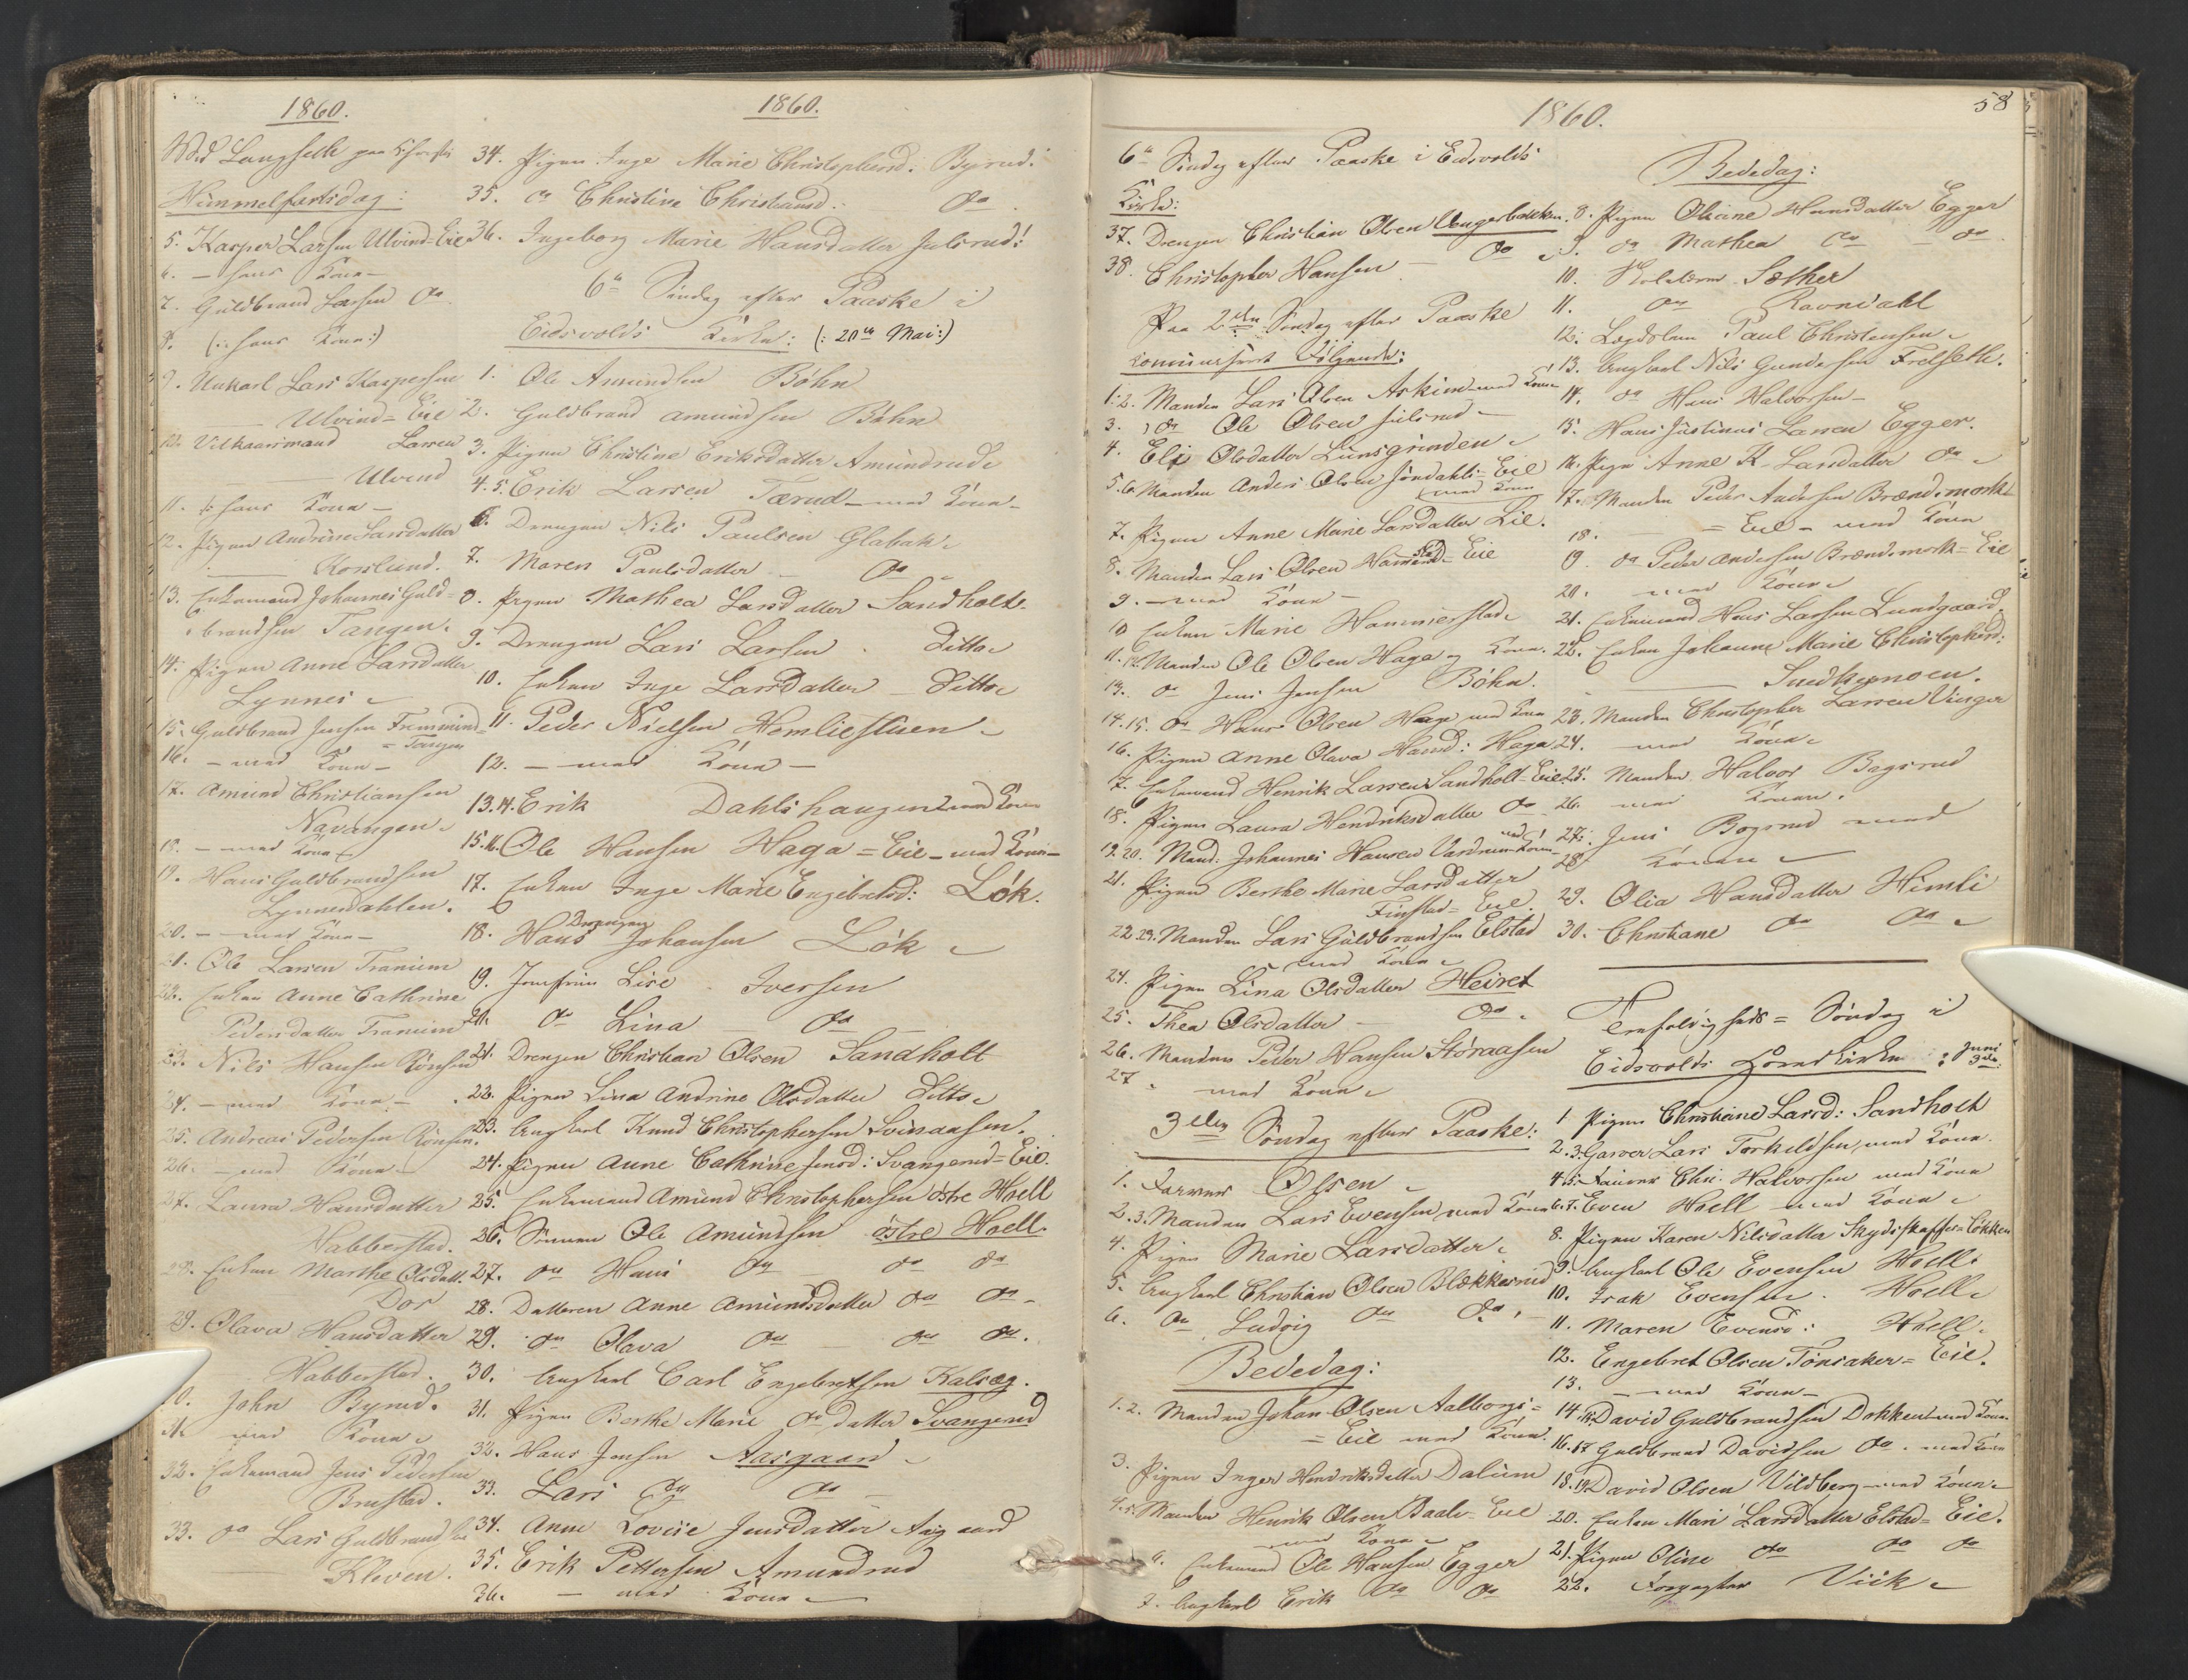 1860.
Ved Langsett paa Christi
Himmelfartsdag:
5. Kasper Larsen Ulvind=Eie
6. – hans Kone –
7. Guldbrand Larsen do
8. (: hans Kone:)
9. Unkarl Lars Kaspersen
Ulvind=Eie
10. Vilkaarsmand Larsen
Ulvind
11. hans Kone –
12. Pigen Andrine Larsdatter
Korslund.
13. Enkemand Johannes Guld=
brandsen Tangen.
14. Pigen Anne Larsdatter
Lynnes
15. Guldbrand Jensen
= Tangen
16. – med Kone –
17. Amund Christiansen
Navangen
18. – med Kone
19. Hans Guldbrandsen
Lynnesdahlen.
20. – med Kone –
21. Ole Larsen Tranum
22. Enken Anne Cathrine
Pedersdatter Tranum
23. Nils Hansen Rønsen
24. – med Kone –
25. Andreas Pedersen Rønsen.
26. – med Kone –
27. Laura Hansdatter
Habberstad.
28. Enken Marthe Olsdatt.
Dor
29. Olava Hansdatter
Habberstad.
30. John Byrud.
31. med Kone
32. Enkemand Jens Pedersen
Brustad.
33. do Lars Guldbrandsen
Kleven.
1860.
34. Pigen Inge Marie Christophersd. Byrud.
35. do Christine Christiansd. do
36. Ingeborg Marie Hansdatter Julsrud.
6te Søndag efter Paaske i
Eidsvolds Kirke: (: 20de Mai:)
1. Ole Amundsen Bøhn
2. Guldbrand Amundsen Bøhn
3. Pigen Christine Eriksdatter Amundrud
4.5. Erik Larsen Tærud – med Kone –
6. Drengen Nils Paulsen Glabak
7. Maren Paulsdatter – do
8. Pigen Mathea Larsdatter Sandholt
9. Drengen Lars Larsen Ditto
10. Enken Inge Larsdatter – Ditto
11. Peder Nielsen Homliestuen
12. – med Kone –
13.14. Erik Dahlshaugen med Kone
15.16. Ole Hansen Haga=Eie – med Kone –
17. Enken Inge Marie Engebretsd: Løk.
18. Drengen Hans Johansen Løk
19. Jomfruen Lise Iversen
20. do Lina – do –
21. Drengen Christian Olsen Sandholt
22. Pigen Lina Andrine Olsdatter Ditto
23. Ungkarl Knud Christophersen Svinaasen.
24. Pigen Anne Cathrine Jensd: Svangerud=Eie.
25. Enkemand Amund Christophersen østre Hoell
26. Sønnen Ole Amundsen østre Hoell.
27. do Hans do do do
28. Datteren Anne Amundsdatter do do –
29. do Olava do – do do.
30. Ungkarl Carl Engebretsen Kalsæg.
31. Pigen Berthe Marie do datter Svangerud
32. Hans Jensen Aasgaard
33. Lars do do –
34. Anne Lovise Jensdatter Aasgaard
35. Erik Pettersen Amundrud
36. – med Kone
1860.
58
6te Søndag efter Paaske i Eidsvolds
Kirke:
37. Drengen Christian Olsen Ungerbakken.
38. Christopher Hansen – do
Paa 2den Søndag efter Paaske
Følgende:
1.2. Manden Lars Olsen Askim med Kone
3. do Ole Olsen Julsrud –
4. Eli Olsdatter Lunsgrinden
5.6. Manden Anders Olsen Jøndahls=Eie
med Kone
7. Pigen Anne Marie Larsdatter Lie.
8. Manden Lars Olsen Hammerstad=Eie
9. – med Kone –
10. Enken Marie Hammerstad
11.12. Manden Ole Olsen Haga og Kone.
13. do Jens Jensen Bøhn.
14.15. do Hans Olsen Haga med Kone
16. Pigen Anne Olava Hansd: Haga
17. Enkemand Henrik Larsen Sandholt=Eie
18. Pigen Laura Hendriksdatter do
19.20. Mand. Johannes Hansen Vardrum med Kone
21. Pigen Berthe Marie Larsdatter
Finstad=Eie.
22.23. Manden Lars Guldbrandsen Elstad
– med Kone
24. Pigen Lina Olsdatter Heiret
25. Thea Olsdatter – do.
26. Manden Peder Hansen Støraasen
27. med Kone
3die Søndag efter Paaske:
1. Farver Olsen
2.3. Manden Lars Evensen med Kone
4. Pigen Marie Larsdatter
5. Ungkarl Christian Olsen Blekkerud
6. do Ludvig do do.
Bededag:
1.2. Manden Johan Olsen Aalborgs=
=Eie med Kone.
3. Pigen Inger Hendriksdatter Dalum
4.5. Manden Henrik Olsen Eie
med Kone
6. Enkemand Ole Hansen Egger
7. Ungkarl Erik do do
Bededag:
8. Pigen Oliane Hansdatter Egger
9. do Mathea do – do
10. Sæther
11. do Ravndahl
12. Lægdslem Paul Christensen
13. Ungkarl Nils Gundersen Frelseth.
14. do Hans Halvorsen –
15. Hans Justinus Larsen Egger.
16. Pigen Anne K. Larsdatter do
17. Manden Peder Andersen Brændsmork
18. =Eie – med Kone
19. do Peder Andersen Brændsmork=Eie
20. med Kone
21. Enkemand Hans Larsen Lundgaard.
22. Enken Johanne Marie Christophersd:
23. Manden Christopher Larsen Vinger
24. med Kone
25. Manden Halvor Bagsrud
26. med Konen.
27. Jens Bogsrud med
28. Konen
29. Olia Hansdatter Himli
30. Christiane do do
Trefoldigheds=Søndag i
Eidsvolds Hovedkirke: Juni 3die
1. Pigen Christiane Larsd: Sandholt
2.3. Garver Lars Torkildsen med Kone.
4.5. Chr. Halvorsen med Kone
6.7. Even Hoell med Kone
8. Pigen Karen Nilsdatter Skydsskaffer=Løkken
9. Ungkarl Ole Evensen Hoell.
10. Isak Evensen. Hoell
11. Maren Evensd: Hoell.
12. Engebret Olsen Tønsaker=Eie.
13. – med Kone –
14.15. David Guldbrandsen Dokken med Kone
16.17. Guldbrand Davidsen do. med Kone
18.19. David Olsen Vildberg med Kone
20. Enken Mari Larsdatter Elstad=Eie.
21. Pigen Oline do do do
22. Forpagter Viik